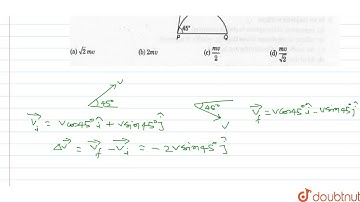 45°
P Q
(a) √2 mv (b) 2mv (c) mv/2 (d) mv/√2
v
45° 45°
v
V⃗i = vcos45° î + vsin45° ĵ
V⃗f = vcos45° î - vsin45° ĵ
ΔV⃗ = V⃗f - V⃗i = -2vsin45° ĵ
doubtnut